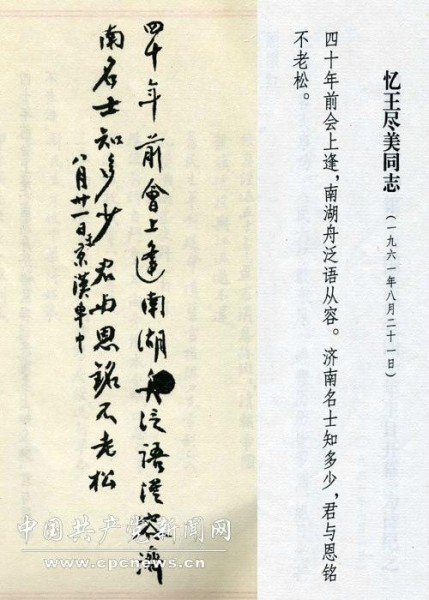 忆王尽美同志
（一九六一年八月二十一日）
四十年前会上逢，南湖舟泛语从容。济南名士知多少，君与恩铭
不老松。
四十年前會上逢南湖舟泛語從容濟
南名士知多少君与恩銘不老松
八月廿一日京漢車中
中国共产党新闻网
www.cpcnews.cn